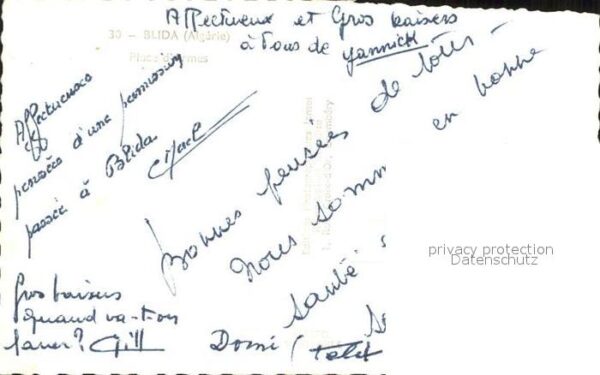 Affectueux et Gros baisers
à Tous de Yannick
33 - BLIDA (Algérie)
Place d'Armes
Affectueuses
pensées d'une
passée à Blida
Bonnes pensées de tous
Nous somm en bonne
santé
Gros baisers
quand va-t-on
laver? Gill
Domi
privacy protection
Datenschutz